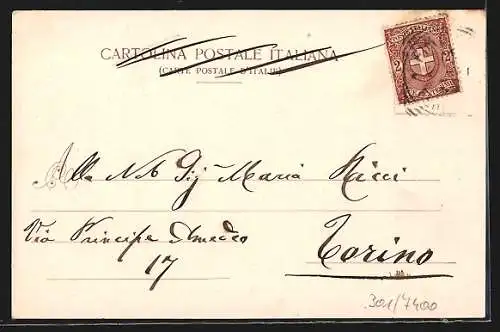 CARTOLINA POSTALE ITALIANA
(CARTE POSTALE D'ITALIE)
2 2
Alla N. D. Sig.ª Maria Ricci
Via Principe Amedeo
17
Torino
301/7400